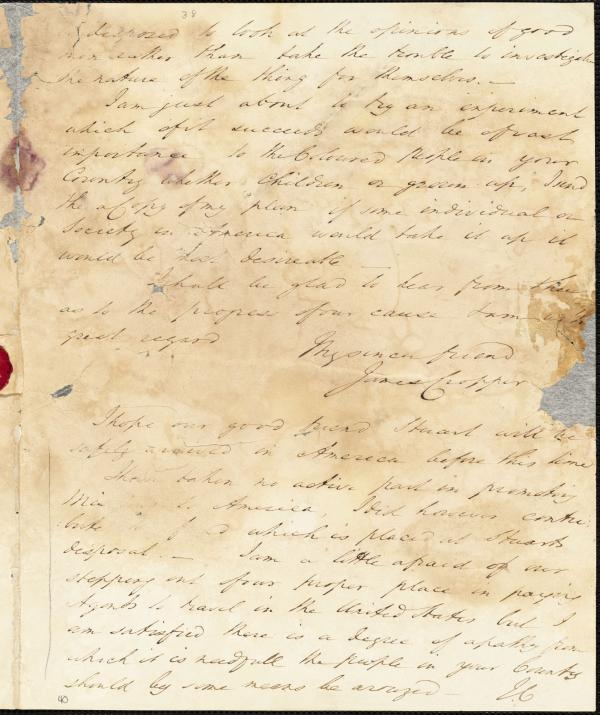 38
disposed to look at the opinions of good
men rather than take the trouble to investigate
the nature of the thing for themselves. —
I am just about to try an experiment
which if it succeeds would be of vast
importance to the Coloured People in your
Country whether Children or grown up, I send
the a Copy of my plan if some individual or
Society in America would take it up it
would be most desireable —
I shall be glad to hear from thee
as to the progress of our cause I am with
great regard
Thy sincere friend
James Cropper
I hope our good friend Stuart will be
safely arrived in America before this time
I have taken no active part in promoting
to America, I did however contri-
bute which is placed at Stuarts
disposal. — I am a little afraid of our
stepping out of our proper place in paying
Agents to travel in the United States but I
am satisfied there is a degree of apathy from
which it is needfull the people in your Country
should by some means be arouzed — J.C
40